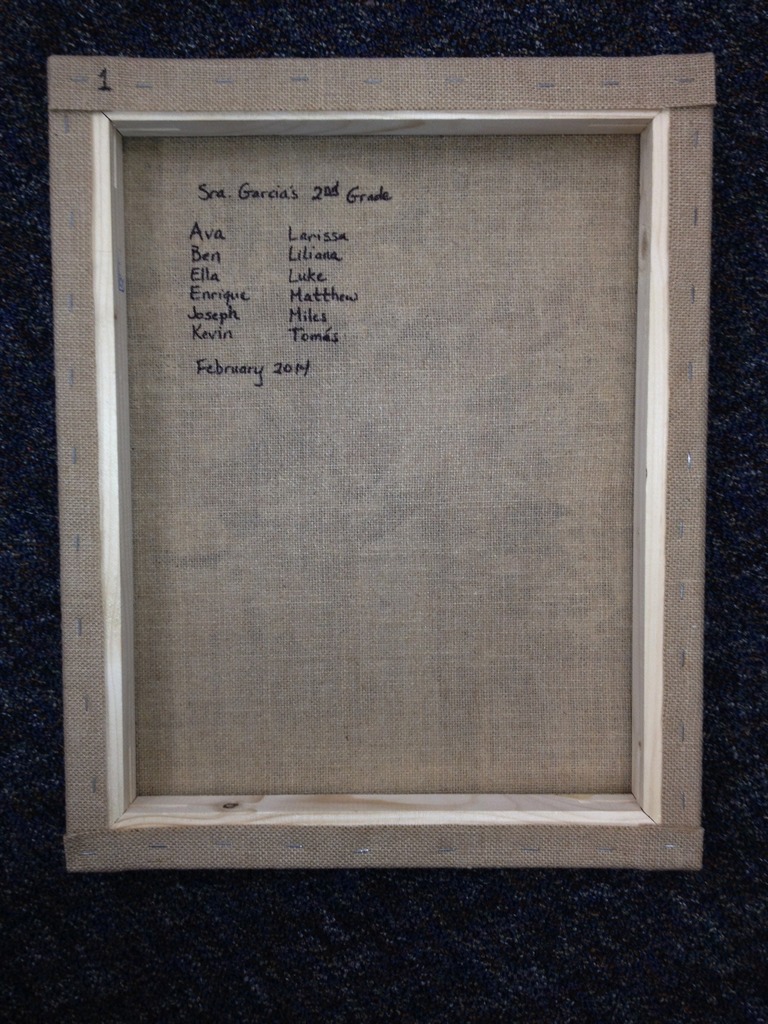 1
Sra. Garcia's 2nd Grade
Ava Larissa
Ben Liliana
Ella Luke
Enrique Matthew
Joseph Miles
Kevin Tomás
February 2014